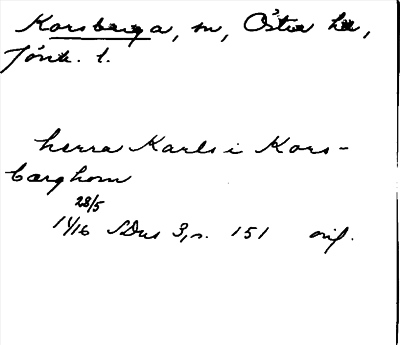 Korsberga, sn, Östra hd,
Jönk. l.
herra Karls i Kors-
bærghom
28/5
1416 SDns 3, s. 151 orig.